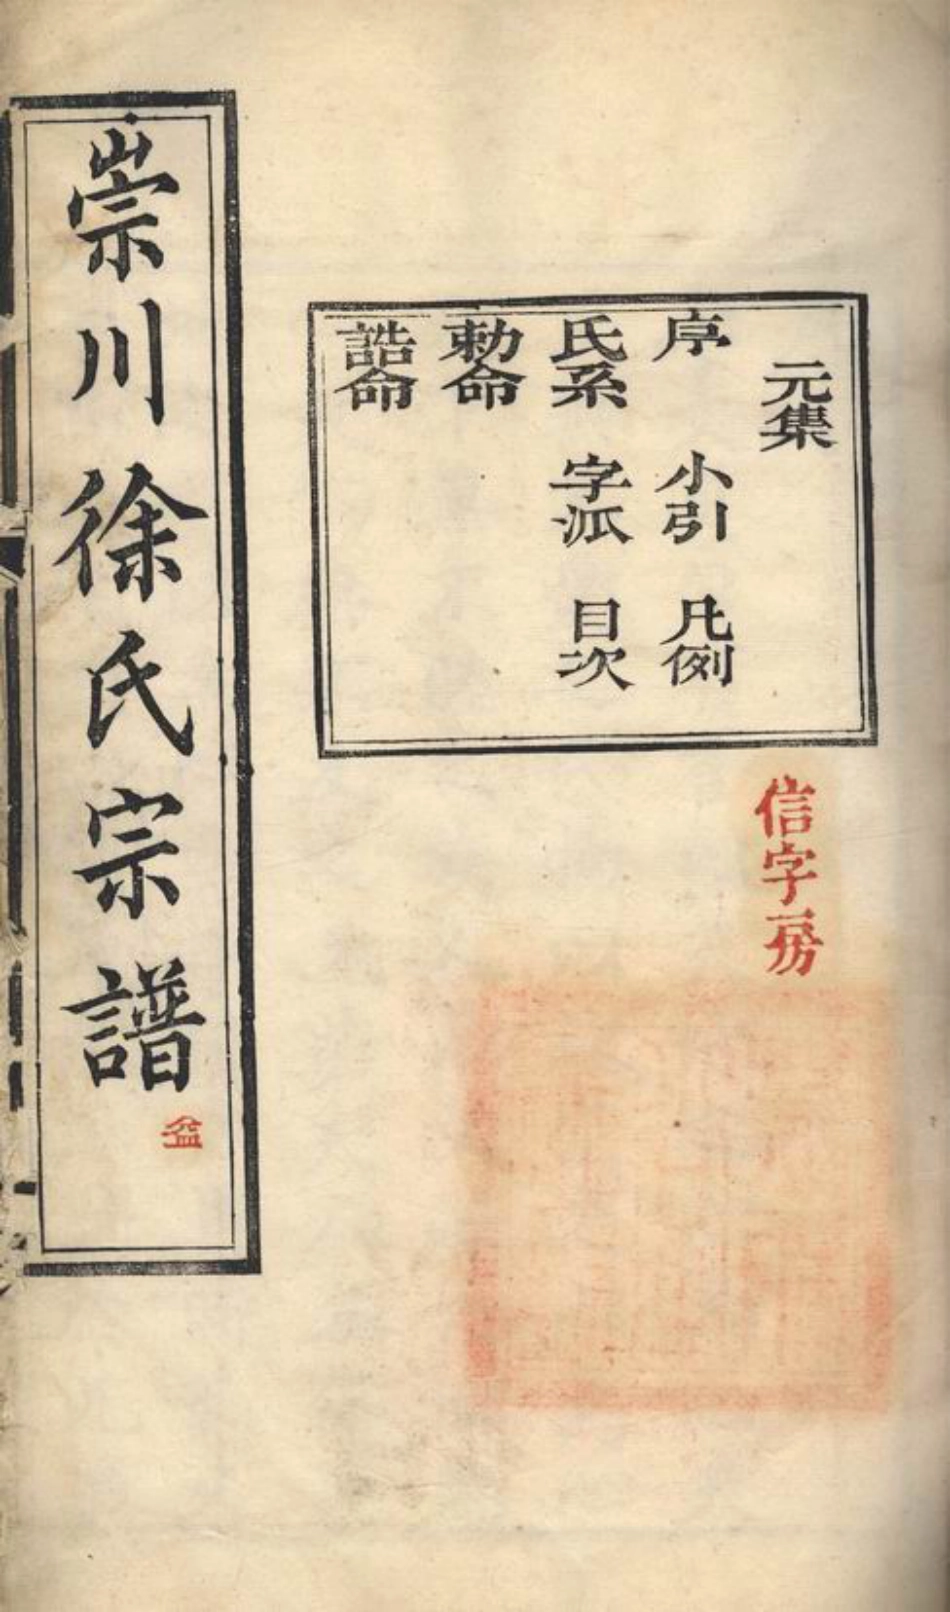 元集
序 小引 凡例
氏系 字派 目次
勅命
誥命
信字房
崇川徐氏宗譜